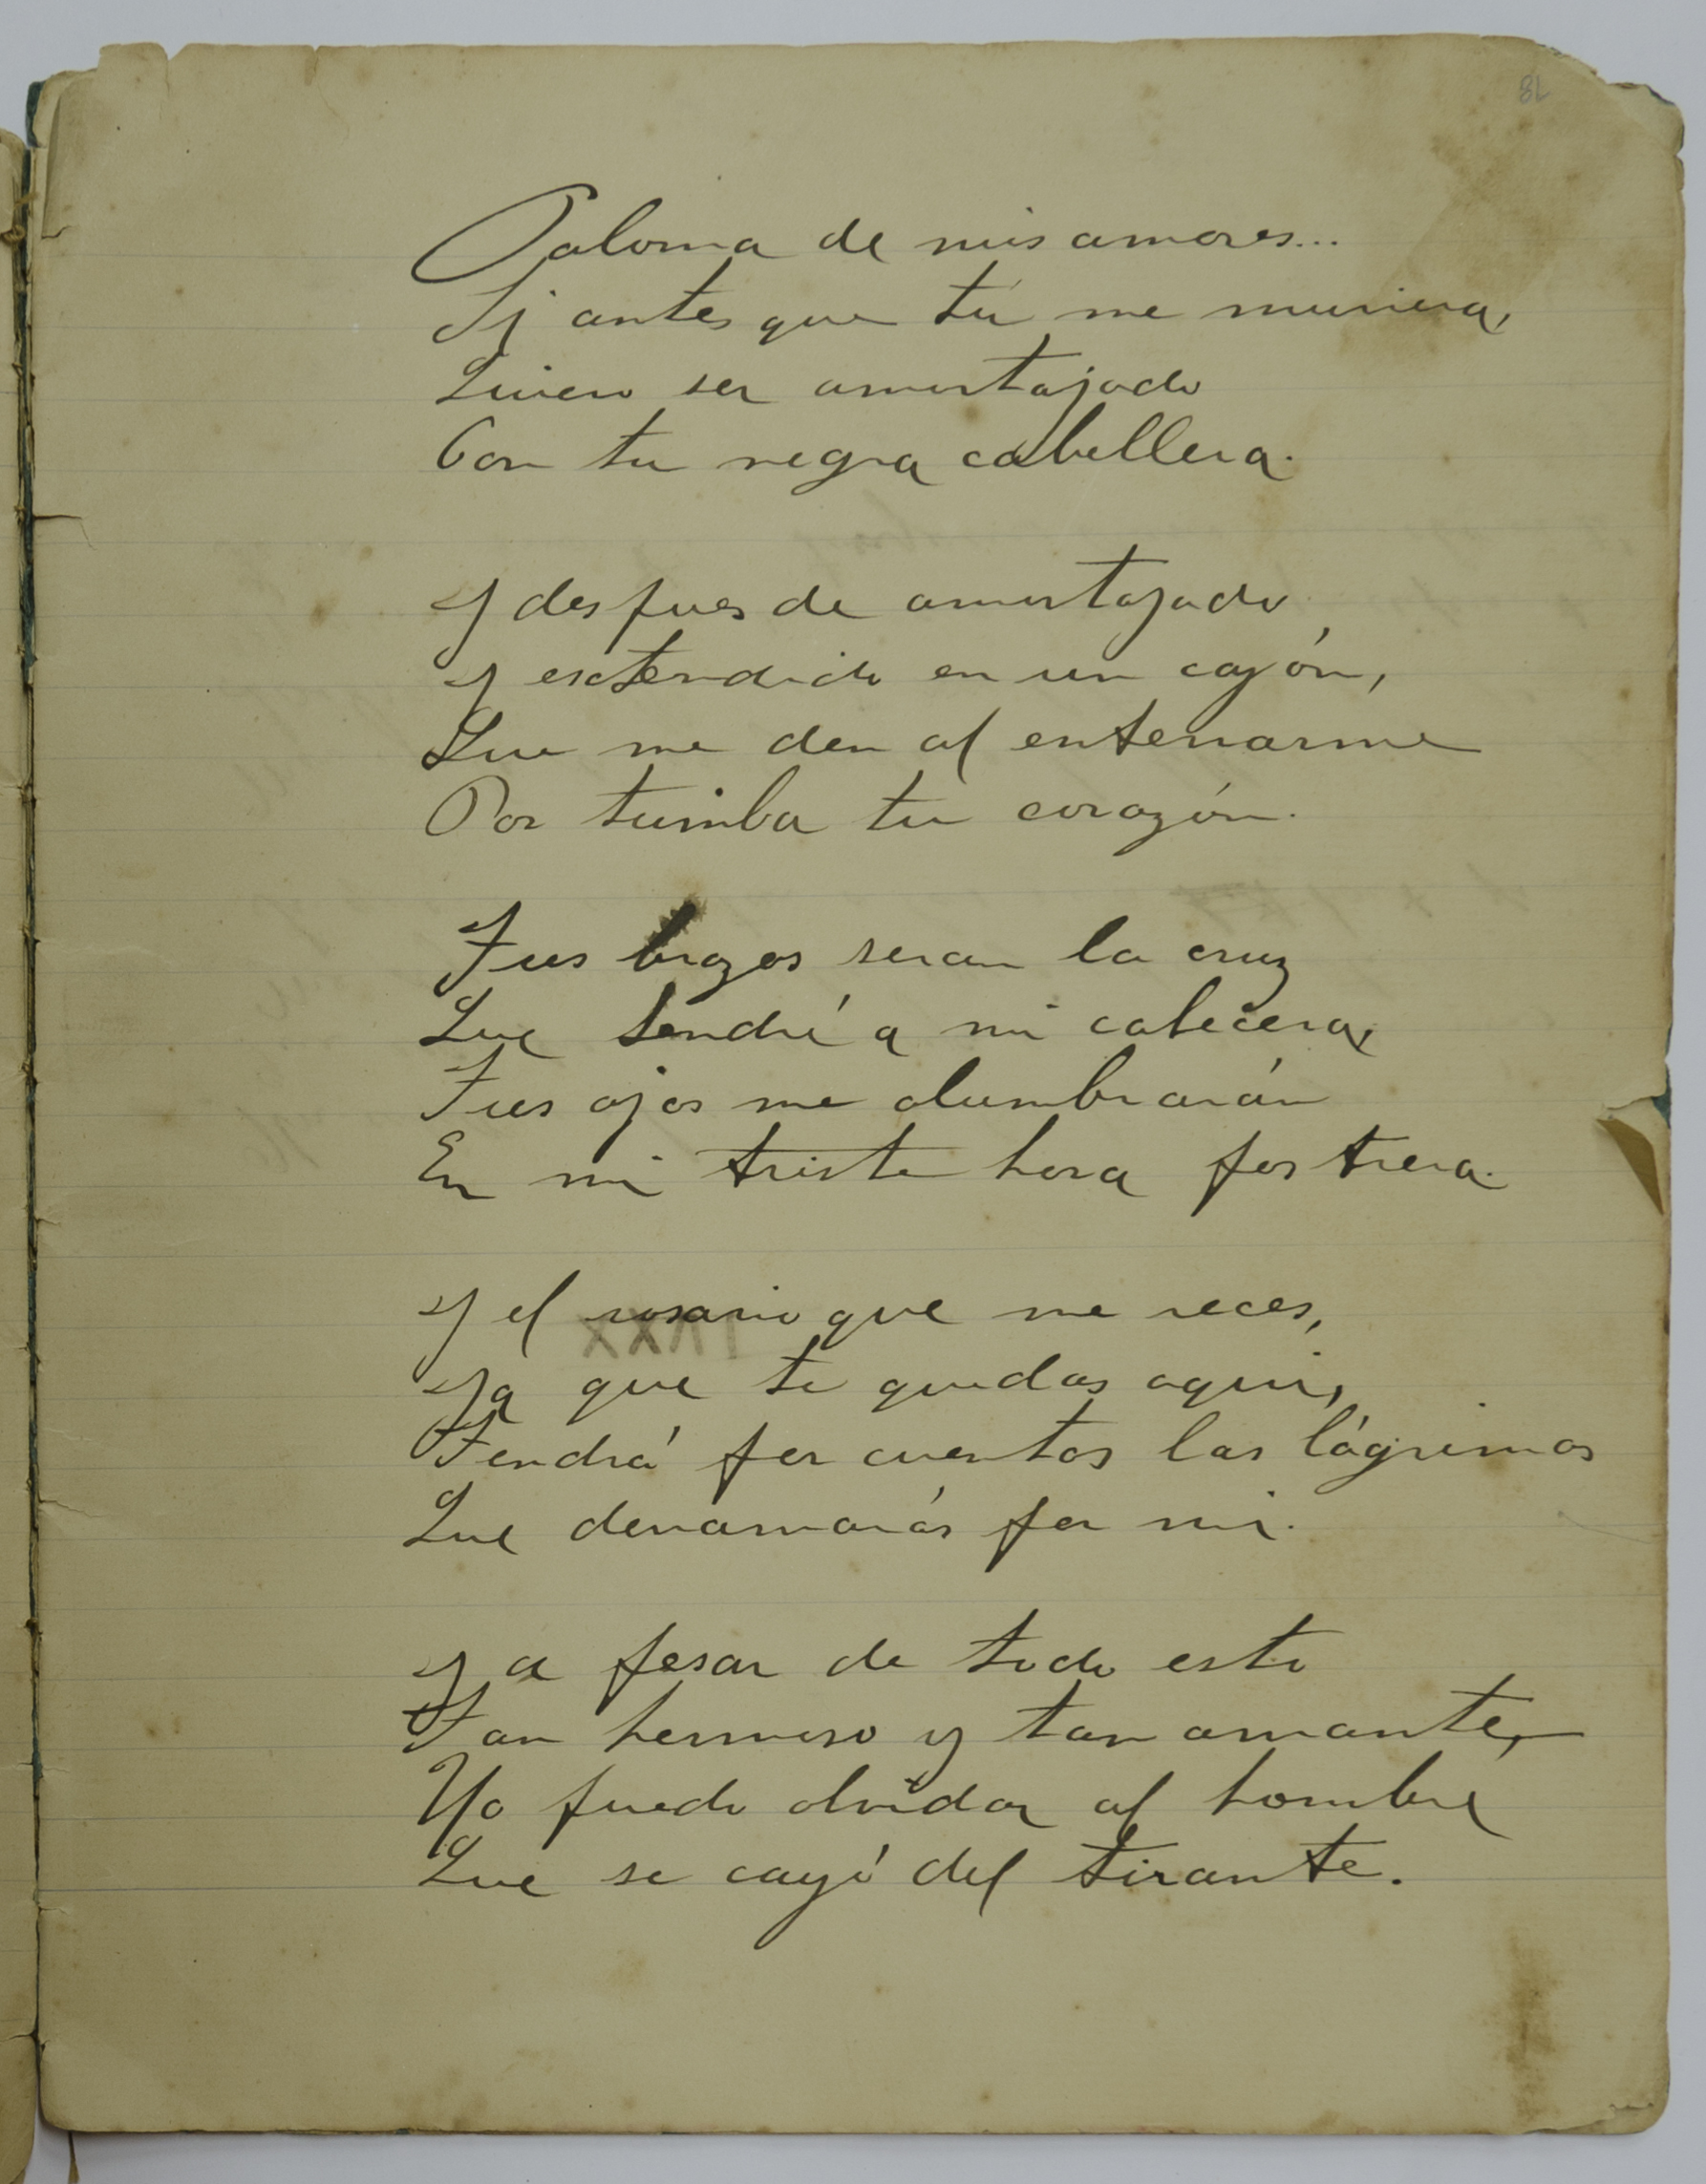 Paloma de mis amores...
Si antes que tú me muriera,
Quiero ser amortajado
Con tu negra cabellera.
Y despues de amortajado
Y extendido en un cajón,
Que me den al enterrarme
Por tumba tu corazón.
Tus brazos seran la cruz
Que tendré a mi cabecera,
Tus ojos me alumbrarán
En mi triste hora postrera.
Y el rosario que me reces,
Ya que te quedas aqui,
Tendrá por cuentas las lágrimas
Que derramarás por mi.
Y a pesar de todo esto
Tan hermoso y tan amante,
No puedo olvidar al hombre
Que se cayó del tirante.